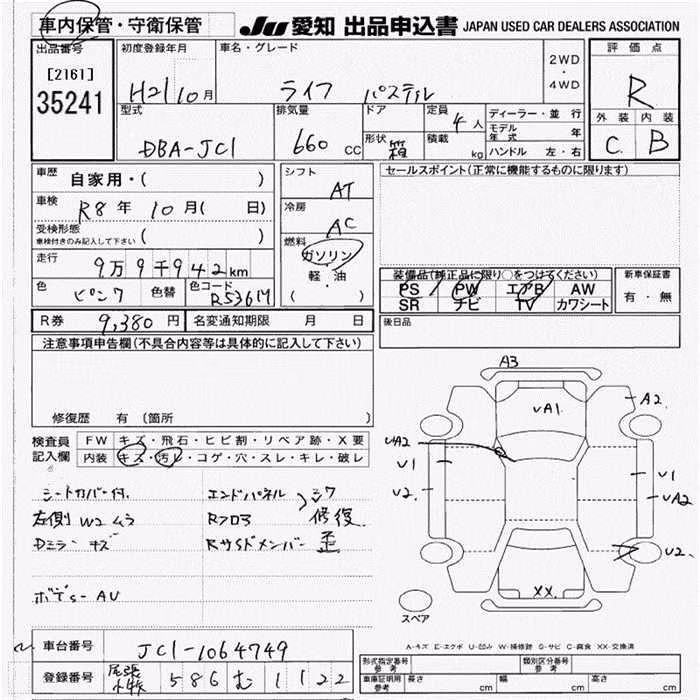 車内保管・守衛保管
JU 愛知 出品申込書 JAPAN USED CAR DEALERS ASSOCIATION
出品番号
[2161]
35241
初度登録年月
H21 10月
車名・グレード
ライフ パステル
2WD
・
4WD
評価点
R
外装 内装
C. B
型式
DBA-JC1
排気量
660 cc
ドア
形状 箱
定員 4人
積載 kg
ディーラー・並行
モデル年式 年
ハンドル 左・右
車歴 自家用・( )
車検 R8年 10月( 日)
受検形態
車検付きのみ記入して下さい ( )
走行 9万9千942km
色 ピンク 色替 色コード R536M
シフト AT
冷房 AC
燃料 ガソリン
軽・油
( )
セールスポイント(正常に機能するものに限ります)
装備品(純正品に限り○をつけてください)
PS PW エアB AW
SR ナビ TV カワシート
新車保証書
有・無
R券 9,380円 名変通知期限 月 日
後日品
注意事項申告欄(不具合内容等は具体的に記入して下さい)
修復歴 有 (箇所 )
検査員記入欄
FW キズ・飛石・ヒビ割・リペア跡・X要
内装 キズ・汚レ・コゲ・穴・スレ・キレ・破レ
シートカバー付.
左側 W2 ムラ
Dミラー キズ
ボデーs- AU
エンドパネル シワ
Rフロア 修復
Rサイドメンバー 歪
A3
UA1
A2
UA2
U1
U2
U1
UA2
U2
XX
スペア
A-キズ E-エクボ U-凹み W-補修跡 S-サビ C-腐食 XX-交換済
車台番号 JC1-1064749
登録番号 尾張小牧 586 む 1122
形式指定番号 参考
類別区分番号 参考
車庫証明用 参考 長さ cm 幅 cm 高さ cm